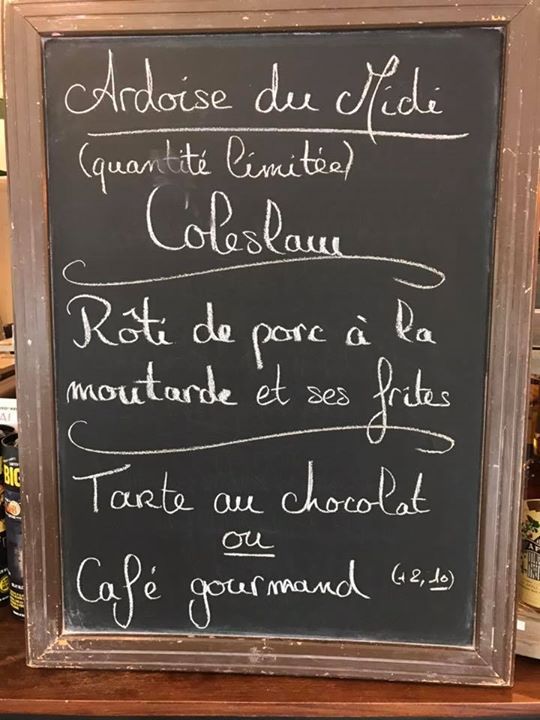 Ardoise du Midi
(quantité limitée)
Coleslaw
Rôti de porc à la
moutarde et ses frites
Tarte au chocolat
ou
Café gourmand (+2,10)
BIG